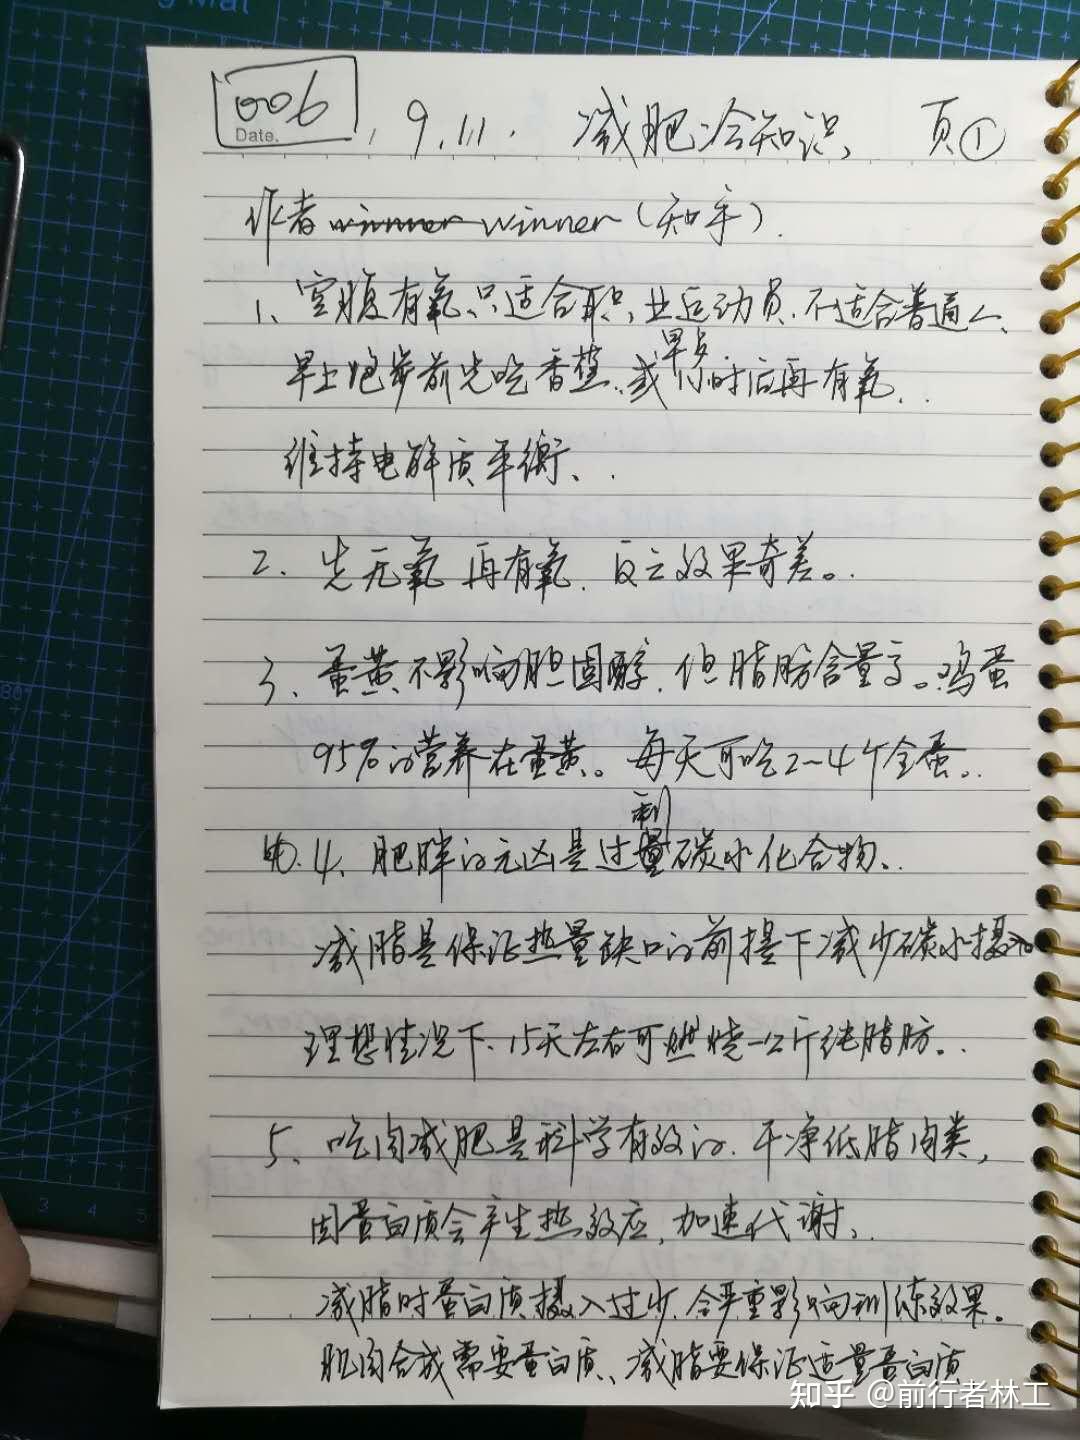 006 Date. 9.11. 减肥冷知识 页①
作者 winner winner (知乎).
1、空腹有氧、只适合职业运动员、不适合普通人、
早上跑步前先吃香蕉、或早点1小时后再有氧..
维持电解质平衡、.
2、先无氧 再有氧. 反之效果奇差。.
3、蛋黄不影响胆固醇. 但脂肪含量高。鸡蛋
95%的营养在蛋黄。每天可吃2~4个全蛋。.
4、肥胖的元凶是过剩碳水化合物、.
减脂是保证热量缺口的前提下减少碳水摄入
理想情况下、15天左右可燃烧一公斤纯脂肪。.
5、吃肉减肥是科学有效的. 干净低脂肉类,
因蛋白质会产生热效应, 加速代谢、.
减脂时蛋白质摄入过少. 会严重影响训练效果。
肌肉合成需要蛋白质、减脂要保证适量蛋白质
知乎 @前行者林工
3 4 5